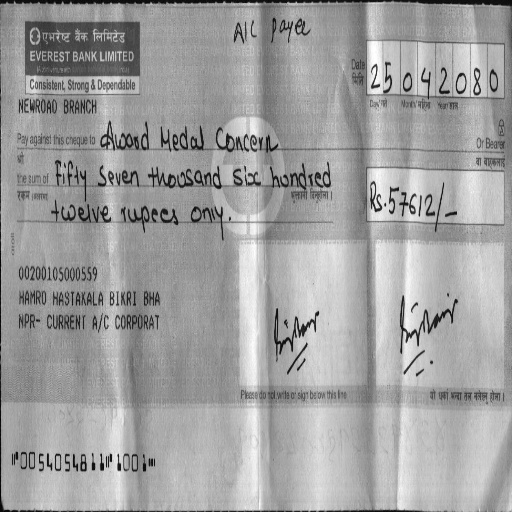 A/C payee
एभरेष्ट बैंक लिमिटेड
EVEREST BANK LIMITED
Consistent, Strong & Dependable
NEWROAD BRANCH
Date
मिति
25042080
Day/गते Month/महिना Year/साल
Pay against this cheque to Award Medal Concern
Or Bearer
श्री
वा वाहकलाई
the sum of Fifty Seven thousand six hundred
रकम
भुक्तानी दिनुहोस् ।
twelve rupees only.
Rs.57612/-
00200105000559
HAMRO HASTAKALA BIKRI BHA
NPR- CURRENT A/C CORPORAT
Please do not write or sign below this line
⑈00540548⑈ 1001⑈